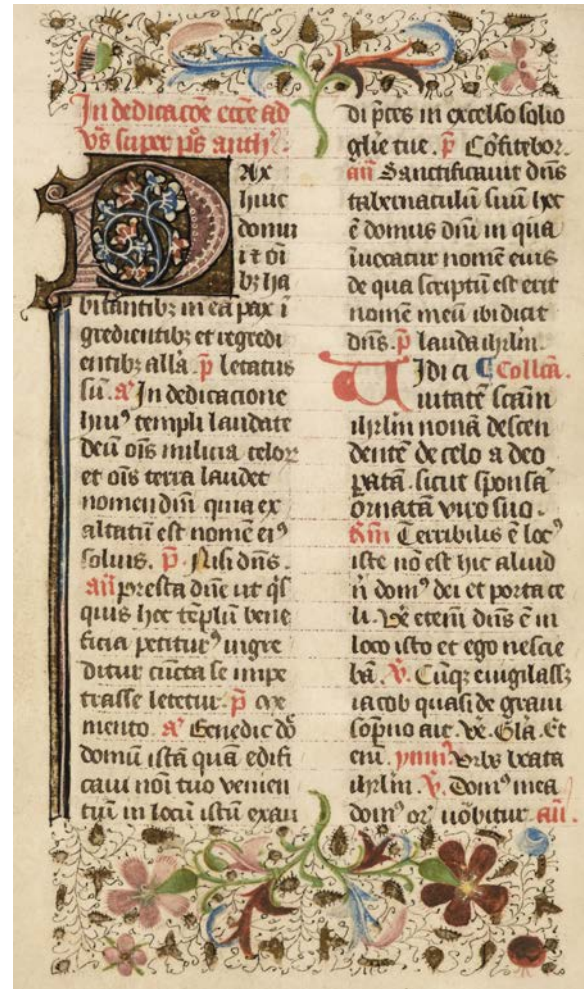 In dedicacōe ecc̄e ad
vs̄ super ps̄ anthᵃ.
PAx
huic
domui
⁊ oı̄
bꝫ ha
bitantibꝫ in ea pax ī
gredientibꝫ et regredi
entibꝫ alla. p̄ letatus
sū. aᵃ In dedicacione
huiꝰ templi laudate
deū oīs milicia celoꝝ
et oīs terra laudet
nomen dn̄i quia ex
altatū est nomē eiꝰ
soliuis. p̄ Nisi dn̄s.
an̄ presta dn̄e ut q̇s
quis hoc tēplū bene
ficia petiturꝰ ingre
ditur cūcta se impe
trasse letetur. p̄ Me
mento. aᵃ Benedic dō
domū istā quā edifi
caui noı̄ tuo venien
tiū in locū istū exau
di p̄ces in excelso solio
glīe tue. p̄ Cōfitebor.
an̄ Sanctificauit dn̄s
tabernaculū suū hec
ē domus dn̄i in qua
īuocatur nomē eius
de qua scriptū est erit
nomē meū ibi dicit
dn̄s. p̄ lauda ihrlm̄.
VIdi ci Collcā.
uitatē scām
ihrlm̄ nouā descen
dentē de celo a deo
ꝑatā. sicut sponsā
ornatā viro suo.
Rm̄ Terribilis ē locꝰ
iste nō est hic aliud
n̄ domꝰ dei et porta ce
li. Ve etem̄ dn̄s ē in
loco isto et ego nescie
bā. v̄. Cūqꝫ euigilassꝫ
iacob quasi de graui
sōpno ait. ve. Glā. Et
em̄. ymnꝰ Vrbs beata
ihrlm̄. v̄. Domꝰ mea
domꝰ or̄ uōbitur an̄.